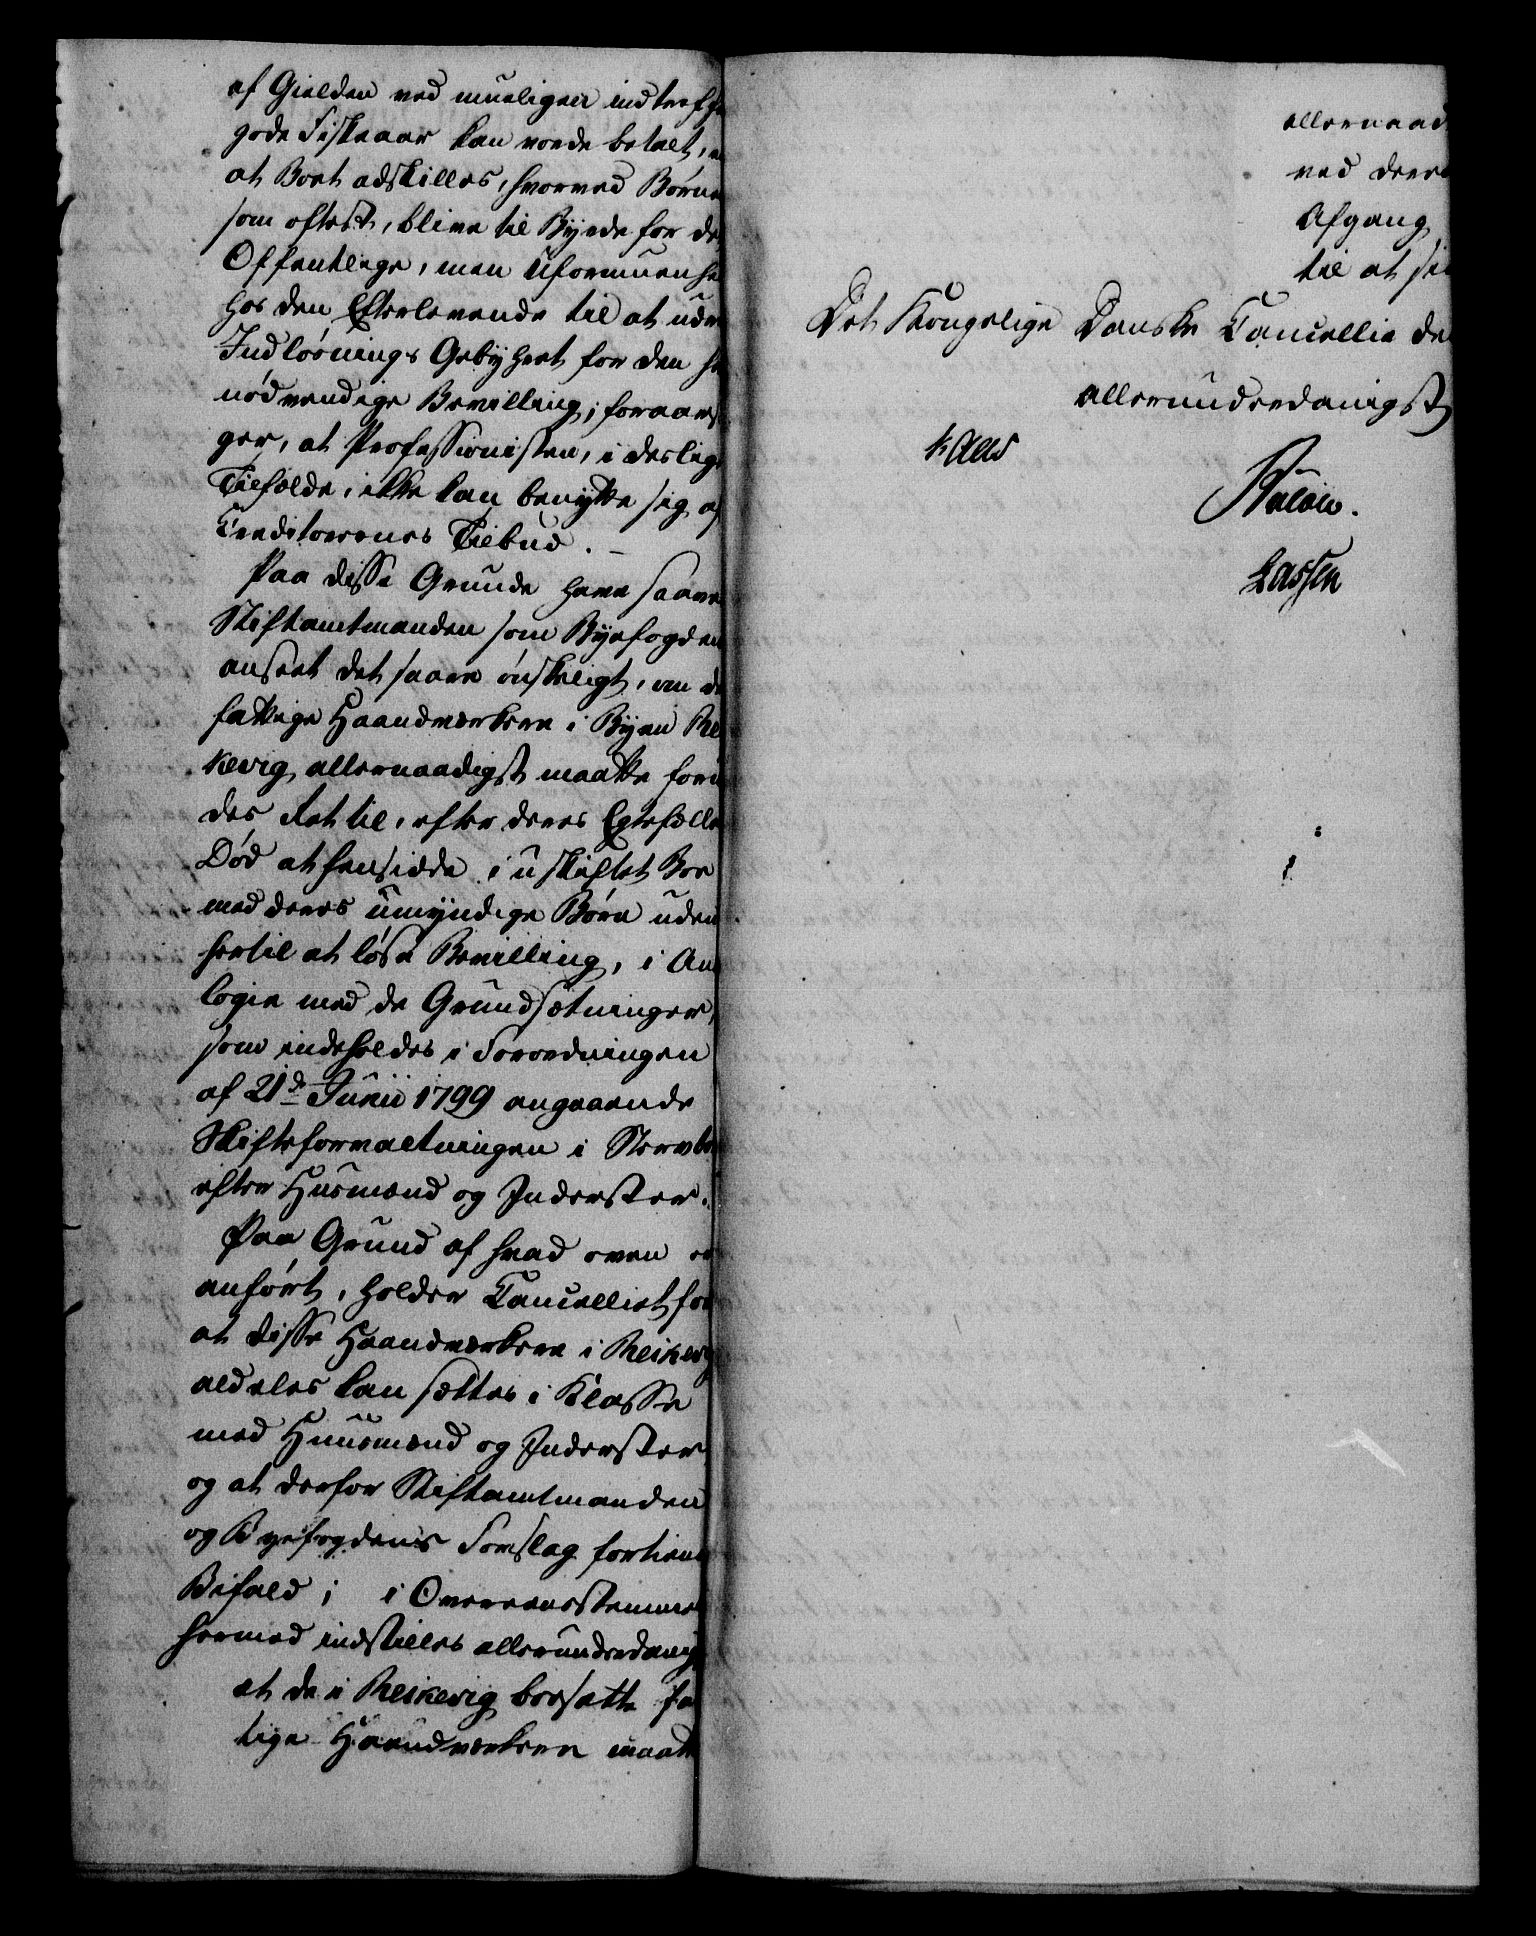 af Gielden ved mueligen indtreff
gode Fiskeaar kan vorde betalt,
at Boet adskilles, hvorved Børne
som oftest, blive til Byrde for de
Offentlige, men Uformuenhe
hos den Efterlevende til at ud
Indløsnings Gebyhret for den h
nødvendige Bevilling; foraars
ger, at Professionisten, i deslige
Tilfælde, ikke kan benytte sig af
Creditorernes Tilbud. –
Paa disse Grunde have saave
Stiftamtmanden som Byefogden
anseet det saare ønskeligt, om de
fattige Haandværkere i Byen Re
kevig allernaadigst maatte forun
des Ret til, efter deres Egtefælle
Død at hensidde i uskiftet Boe
med deres umyndige Børn uden
hertil at løse Bevilling, i Ana
logie med de Grundsætninger,
som indeholdes i Forordningen
af 21de Junii 1799 angaaende
Skifteforvaltningen i Stervbo
efter Husmænd og Inderster.
Paa Grund af hvad oven er
anført, holder Cancelliet for
at disse Haandværkere i Reikevig
aldeles kan sættes i Klasse
med Huusmænd og Inderster
og at derfor Stiftamtmanden
og Byefogdens Forslag fortiene
Bifald; i Overeensstemmel
hermed indstilles allerunderdanig
at de i Reikevig bosatte fat
tige Haandværkere maatte
allernaad
ved deres
Afgang
til at si
Det Kongelige Danske Cancellie de
allerunderdanigst
Kaas
Bülow.
Lassen